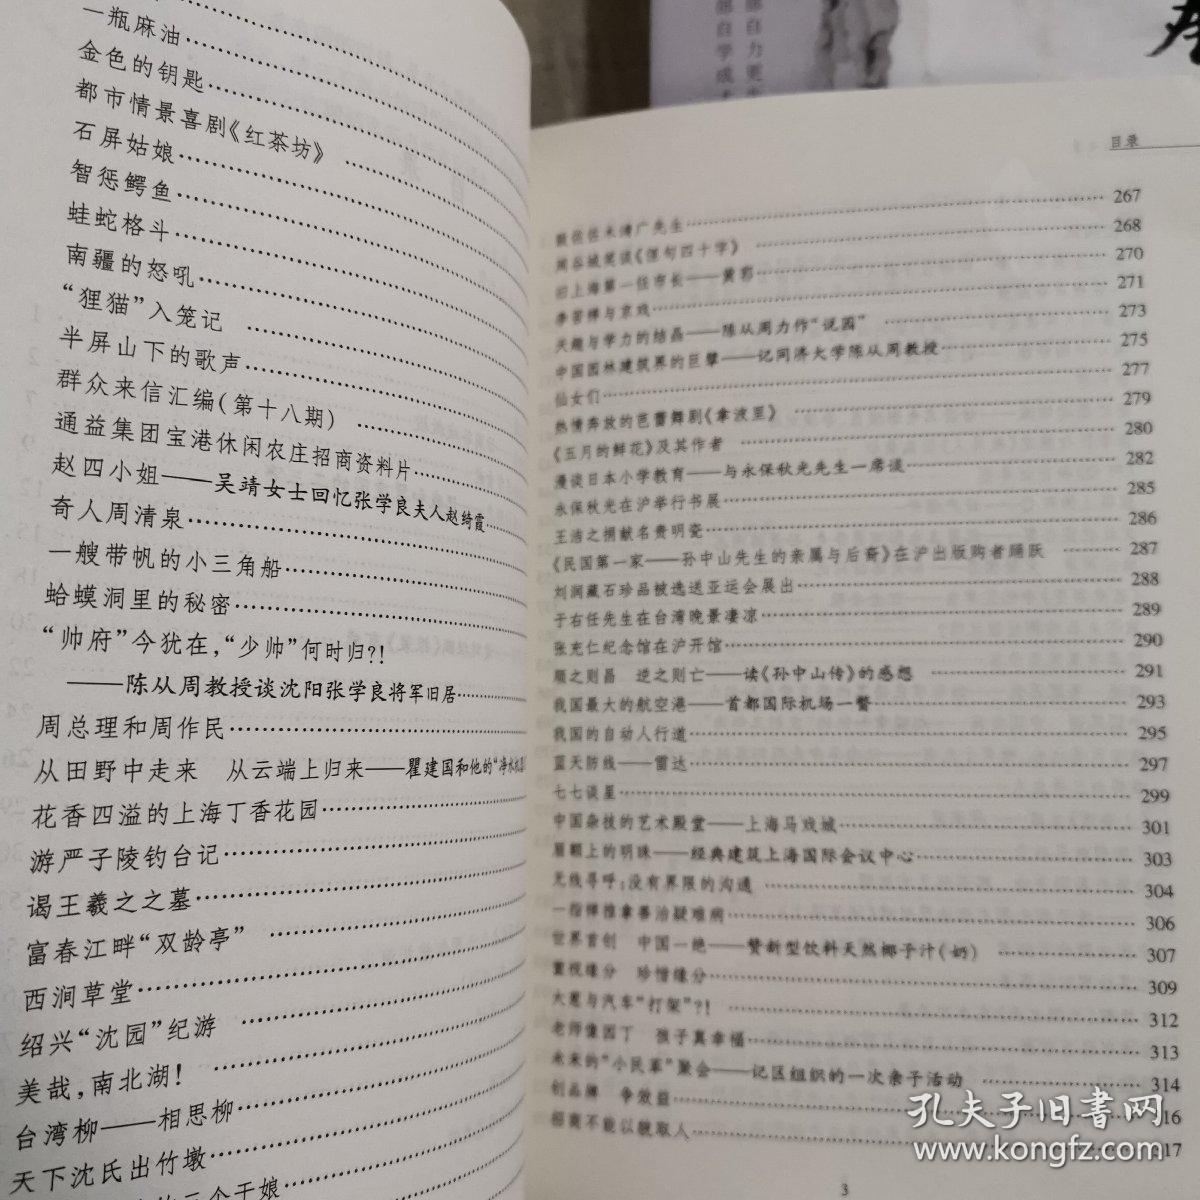 一瓶麻油
金色的钥匙
都市情景喜剧《红茶坊》
石屏姑娘
智惩鳄鱼
蛙蛇格斗
南疆的怒吼
“狸猫”入笼记
半屏山下的歌声
群众来信汇编(第十八期)
通益集团宝港休闲农庄招商资料片
赵四小姐——吴靖女士回忆张学良夫人赵绮霞
奇人周清泉
一艘带帆的小三角船
蛤蟆洞里的秘密
“帅府”今犹在,“少帅”何时归?!
——陈从周教授谈沈阳张学良将军旧居
周总理和周作民
从田野中走来 从云端上归来——瞿建国和他的“净水
花香四溢的上海丁香花园
游严子陵钓台记
谒王羲之之墓
富春江畔“双龄亭”
西涧草堂
绍兴“沈园”纪游
美哉,南北湖!
台湾柳——相思柳
天下沈氏出竹墩
三个干娘
目录
佐佐木清广先生 267
周谷城笑谈《俚句四十字》 268
旧上海第一任市长——黄郛 270
李苦禅与京戏 271
天趣与学力的结晶——陈从周力作“说园” 273
中国园林建筑界的巨擘——记同济大学陈从周教授 275
仙女们 277
热情奔放的芭蕾舞剧《拿波里》 279
《五月的鲜花》及其作者 280
漫谈日本小学教育——与永保秋光先生一席谈 282
永保秋光在沪举行书展 285
王洁之捐献名贵明瓷 286
《民国第一家——孙中山先生的亲属与后裔》在沪出版购者踊跃 287
刘润藏石珍品被选送亚运会展出 288
于右任先生在台湾晚景凄凉 289
张充仁纪念馆在沪开馆 290
顺之则昌 逆之则亡——读《孙中山传》的感想 291
我国最大的航空港——首都国际机场一瞥 293
我国的自动人行道 295
蓝天防线——雷达 297
七七谈星 299
中国杂技的艺术殿堂——上海马戏城 301
眉额上的明珠——经典建筑上海国际会议中心 303
无线寻呼:没有界限的沟通 304
一指禅推拿善治疑难病 306
世界首创 中国一绝——赞新型饮料天然椰子汁(奶) 307
重视缘分 珍惜缘分 309
大葱与汽车“打架”?! 312
老师像园丁 孩子真幸福 313
未来的“小民革”聚会——记区组织的一次亲子活动 314
创品牌 争效益 16
招商不能以貌取人 17
3
孔夫子旧书网
www.kongfz.com